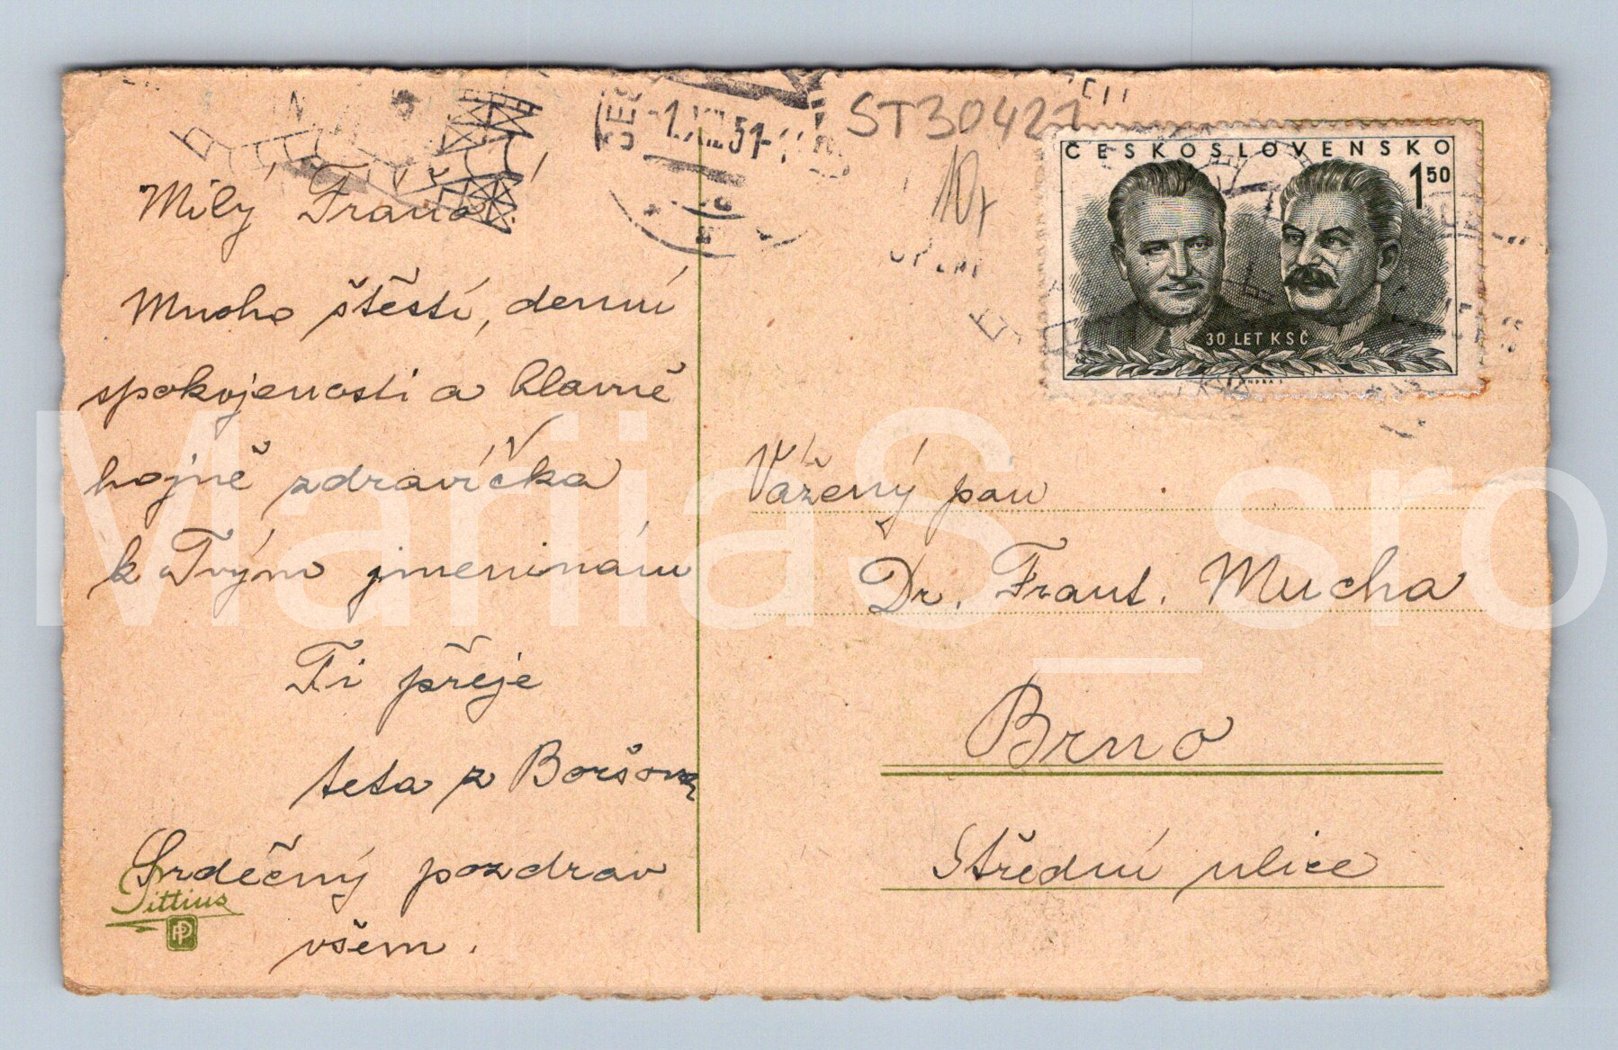 ST30421
-1.XII.51-
ČESKOSLOVENSKO
1 50
30 LET KSČ
Milý Fráňo!
Mnoho štěstí, denní
spokojenosti a hlavně
hojně zdravíčka
k Tvým jmeninám
Ti přeje
teta z Boršova
Srdečný pozdrav
všem.
Pittius
PP
Vážený pan
Dr. Frant. Mucha
Brno
Střední ulice
MariaS_sro